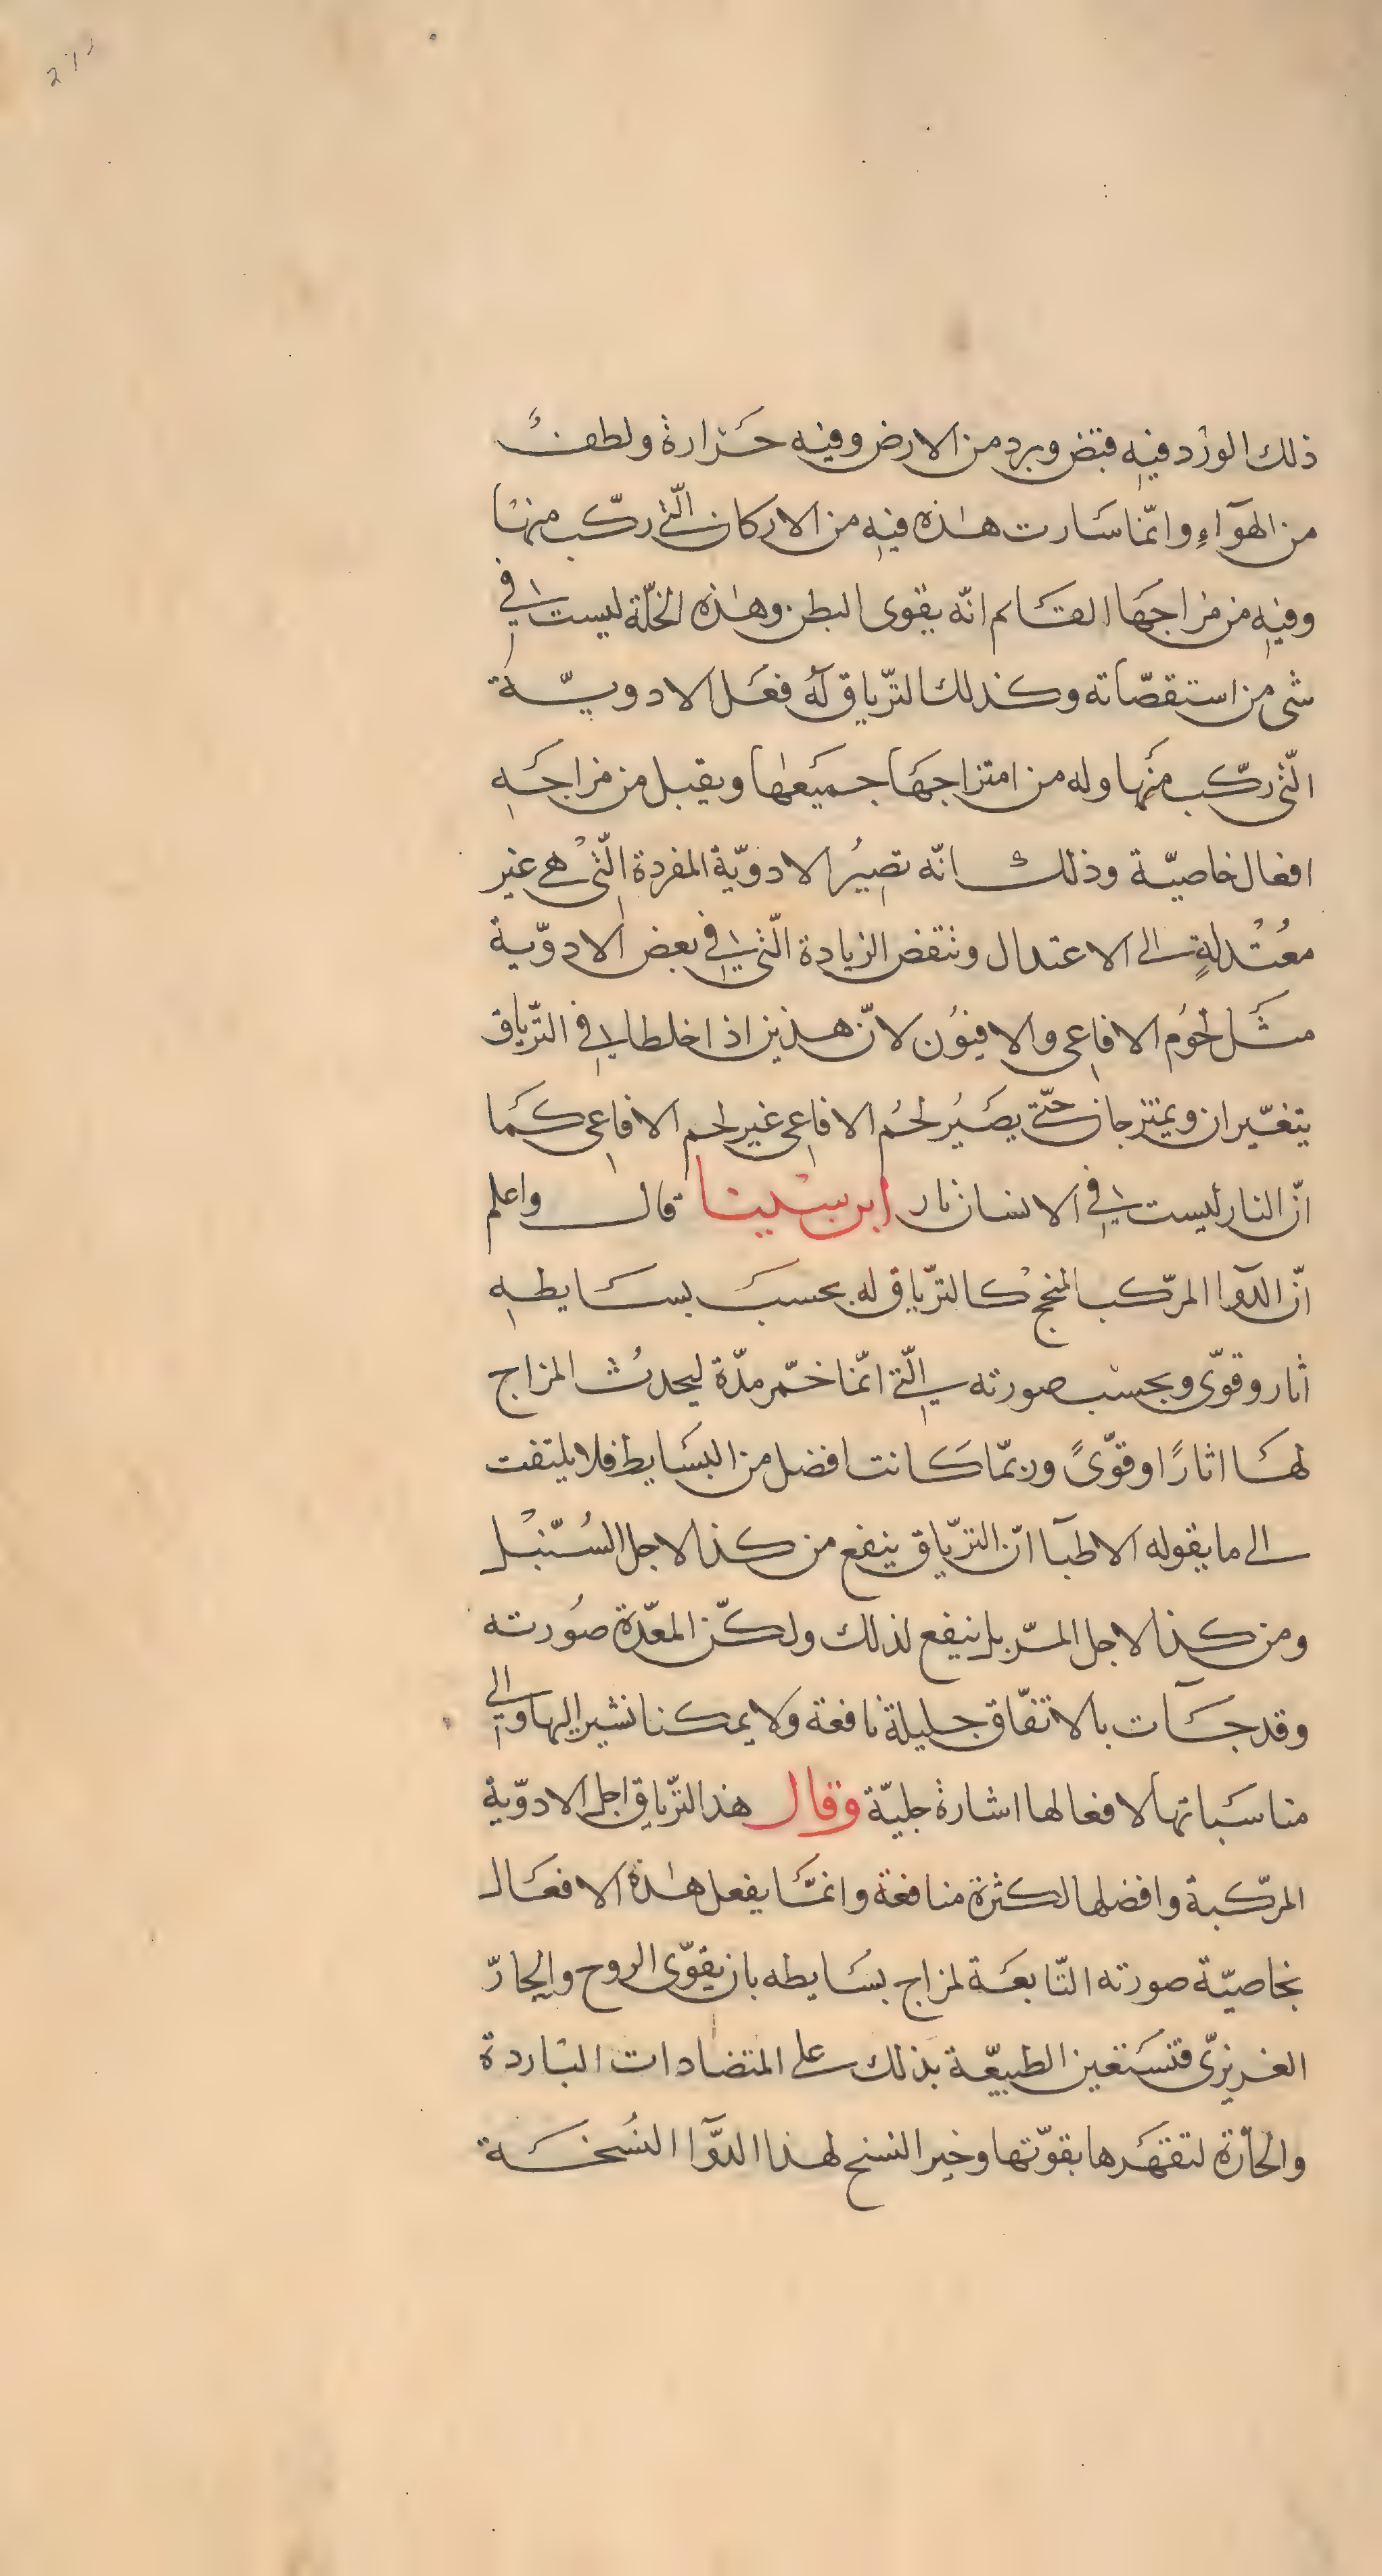 ذلك الورد فيه قبض وبرد من الارض وفيه حرارة ولطف
من الهوآء وانّما سارت هذه فيه من الاركان الّتي ركّب منها
وفيه من مزاجها القائم انّه يقوى البطن وهذه الخلّة ليست في
شى من استقصّاته وكذلك الترّياق له فعل الادويّة
الّتي ركّب منها وله من امتزاجها جميعها ويقبل من مزاجه
افعال خاصيّة وذلك انّه تصير الادويّة المفردة الّتي هي غير
معتدلةٍ الى الاعتدال وتنقض الزيادة الّتي في بعض الادوّية
مثل لحوم الافاعي والافيون لانّ هذين اذا خلطا في الترّياق
يتغيّران ويمتزجان حتّى يصير لحم الافاعي غير لحم الافاعي كما
انّ النار ليست في الانسان نار ابن سينا قال واعلم
انّ الدوآا المركّب المنجح كالترّياق له بحسب بسايطه
اثار وقوّى وبحسب صورته الّتي انّما خمّر مدّة ليحدث المزاج
لها اثارًا وقوّىً وربمّا كانت افضل من البسايط فلا يلتفت
الى ما يقوله الاطبآ انّ الترّياق ينفع من كذا لاجل السّنبل
ومن كذا لاجل المرّ بل ينفع لذلك ولكنّ المعدّة صورته
وقد جآت بالاتفّاق جليلة نافعة ولا يمكننا نشير اليها والى
مناسباتها لافعالها اشارة جليّة وقال هذا الترّياق اجل الادوّية
المركّبة وافضلها لكثرة منافعة وانمّا يفعل هذة الافعال
بخاصيّة صورته التّابعة لمزاج بسايطه بان يقوّى الروح والحارّ
الغريزىّ فتستعين الطبيعّة بذلك على المتضادات الباردة
والحارّة لتقهرها بقوّتها وخير النسخ لهذا الدوّآا النسخة